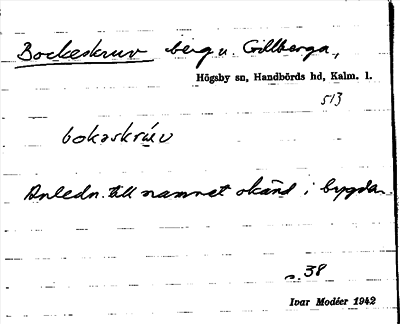 Bockeskruv berg u. Gillberga,
Högsby sn, Handbörds hd, Kalm. l.
513
bokaskrúv
Anledn. till namnet okänd i bygden
s. 38
Ivar Modéer 1942